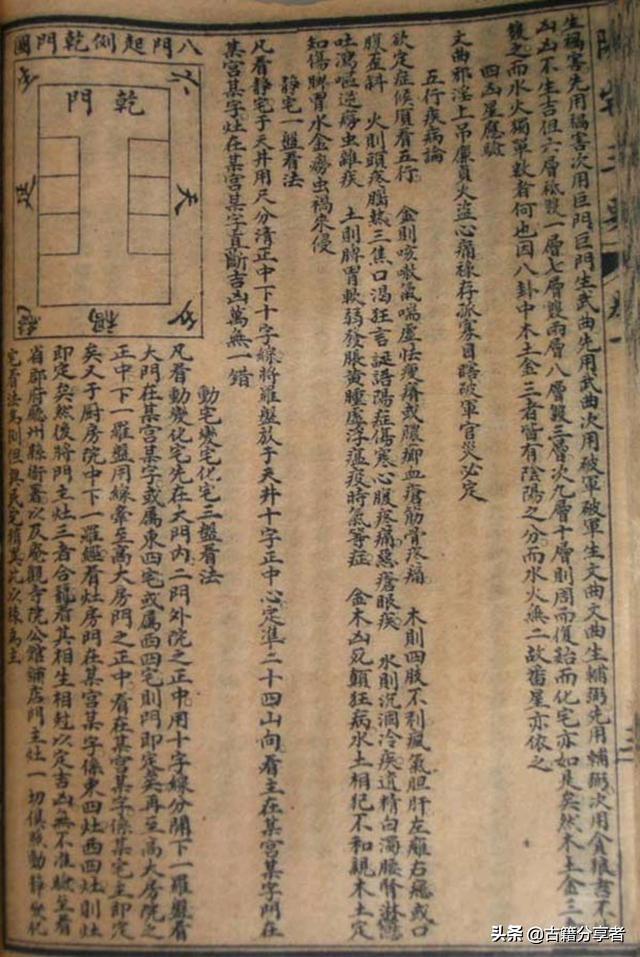 生禍害先用禍害次用巨門巨門生武曲先用武曲次用破軍破軍生文曲文曲生輔弼先用輔弼次用貪狼吉不
凶凶不生吉但六層祗設一層七層設兩層八層設三層次九層十層則周而復始而化宅亦如是矣然木土金三
復之而水火獨單數者何也因八卦中木土金三者皆有陰陽之分而水火無二故番星亦依之
四凶星應驗
文曲邪淫上吊廉貞火盜心痛祿存孤寡目 破軍官災必定
五行疾病論
欲定症候須看五行 金則咳嗽氣喘虛怯瘦瘠或膿 血瘡筋骨疼痛 木則四肢不利瘋氣胆肝左癱右瘓或口
眼歪斜 火則頭疼腦熱三焦口渴狂言誕語陽症傷寒心腹疼痛惡瘡眼疾 水則沉涸冷疾遺精白濁腰腎淋
吐瀉嘔逆癆虫雜疾 土則脾胃軟弱發脹黃腫虛浮瘟疫時氣等症 金木凶死顛狂病水土相犯不和親木土定
知傷脾胃水金癆虫禍來侵
靜宅一盤看法
凡看靜宅于天井用尺分清正中下十字線將羅盤放于天井十字正中心定準二十四山向看主在某宮某字門在
某宮某字灶在某宮某字直斷吉凶萬無一錯
動宅變宅化宅三盤看法
凡看動變化宅先在大門內二門外院之正中用十字線分開下一羅盤看
大門在某宮某字或屬東四宅或屬西四宅則門即定矣再至高大房院之
正中下一羅盤用線牽至高大房門之正中看在某宮某字係某宅主即定
矣又于廚房院中下一羅經看灶房門在某宮某字係東四灶西四灶則灶
即定矣然後將門主灶三者合 看其相生相剋以定吉凶無不准驗至看
省郡府廳州縣衙署以及庵觀寺院公館鋪店門主灶一切俱照動靜變化
宅看法為 但與民宅
八門起例乾門圖
乾門
六
天
五
禍
絕
延
生
头条 @古籍分享者